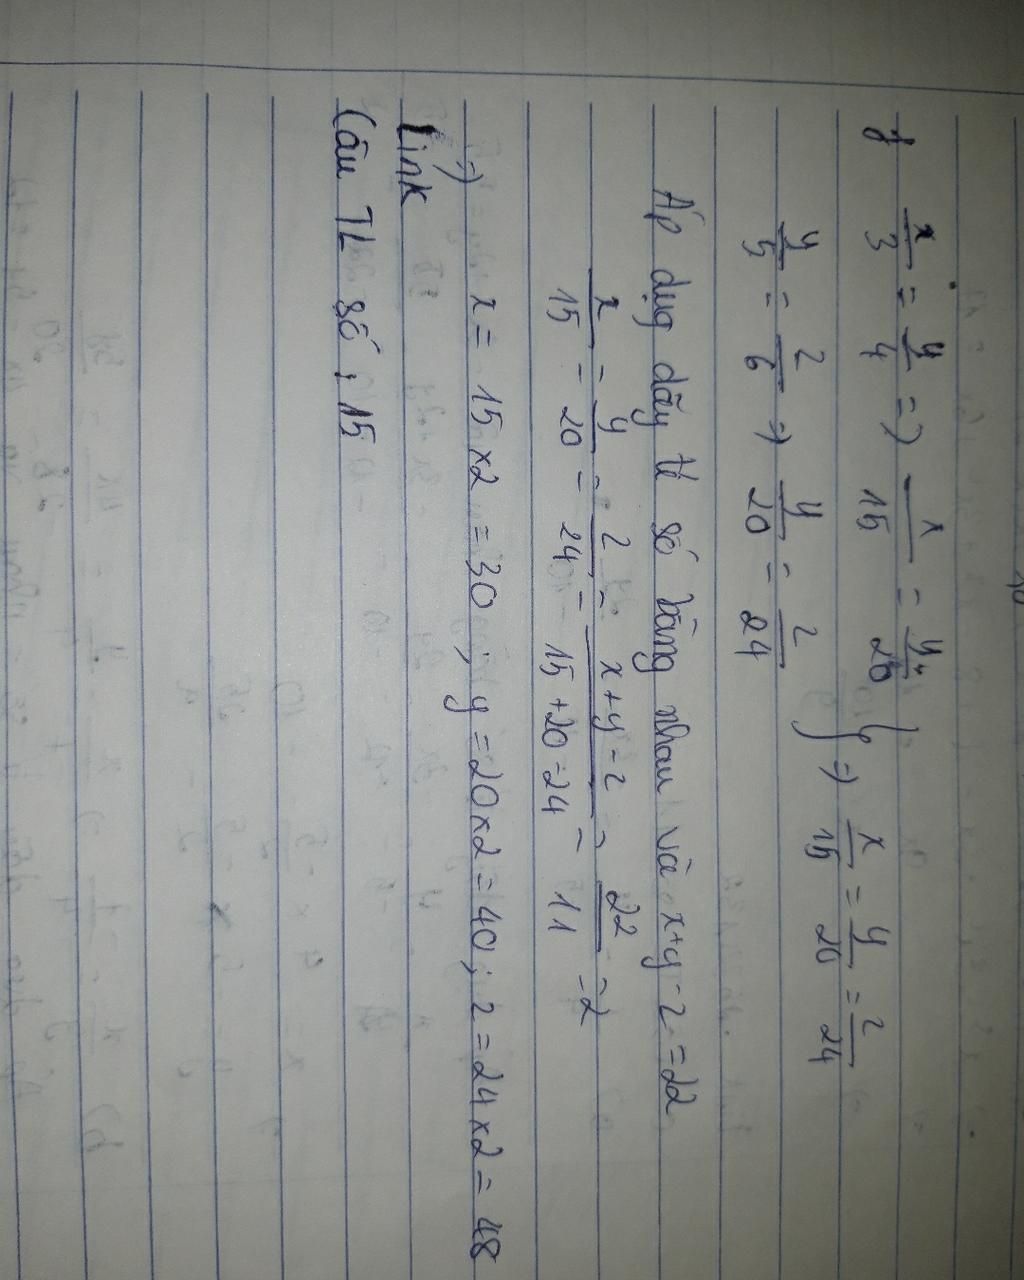 f x/3 = y/4 => x/15 = y/20
y/5 = z/6 => y/20 = z/24 } => x/15 = y/20 = z/24
Áp dụg dãy tỉ số bằng nhau và x+y-z=22
x/15 = y/20 = z/24 = x+y-z/15+20-24 = 22/11 =2
=) x = 15 x2 = 30 ; y = 20x2 = 40; z = 24 x2 = 48
Link
Câu TL số : 15